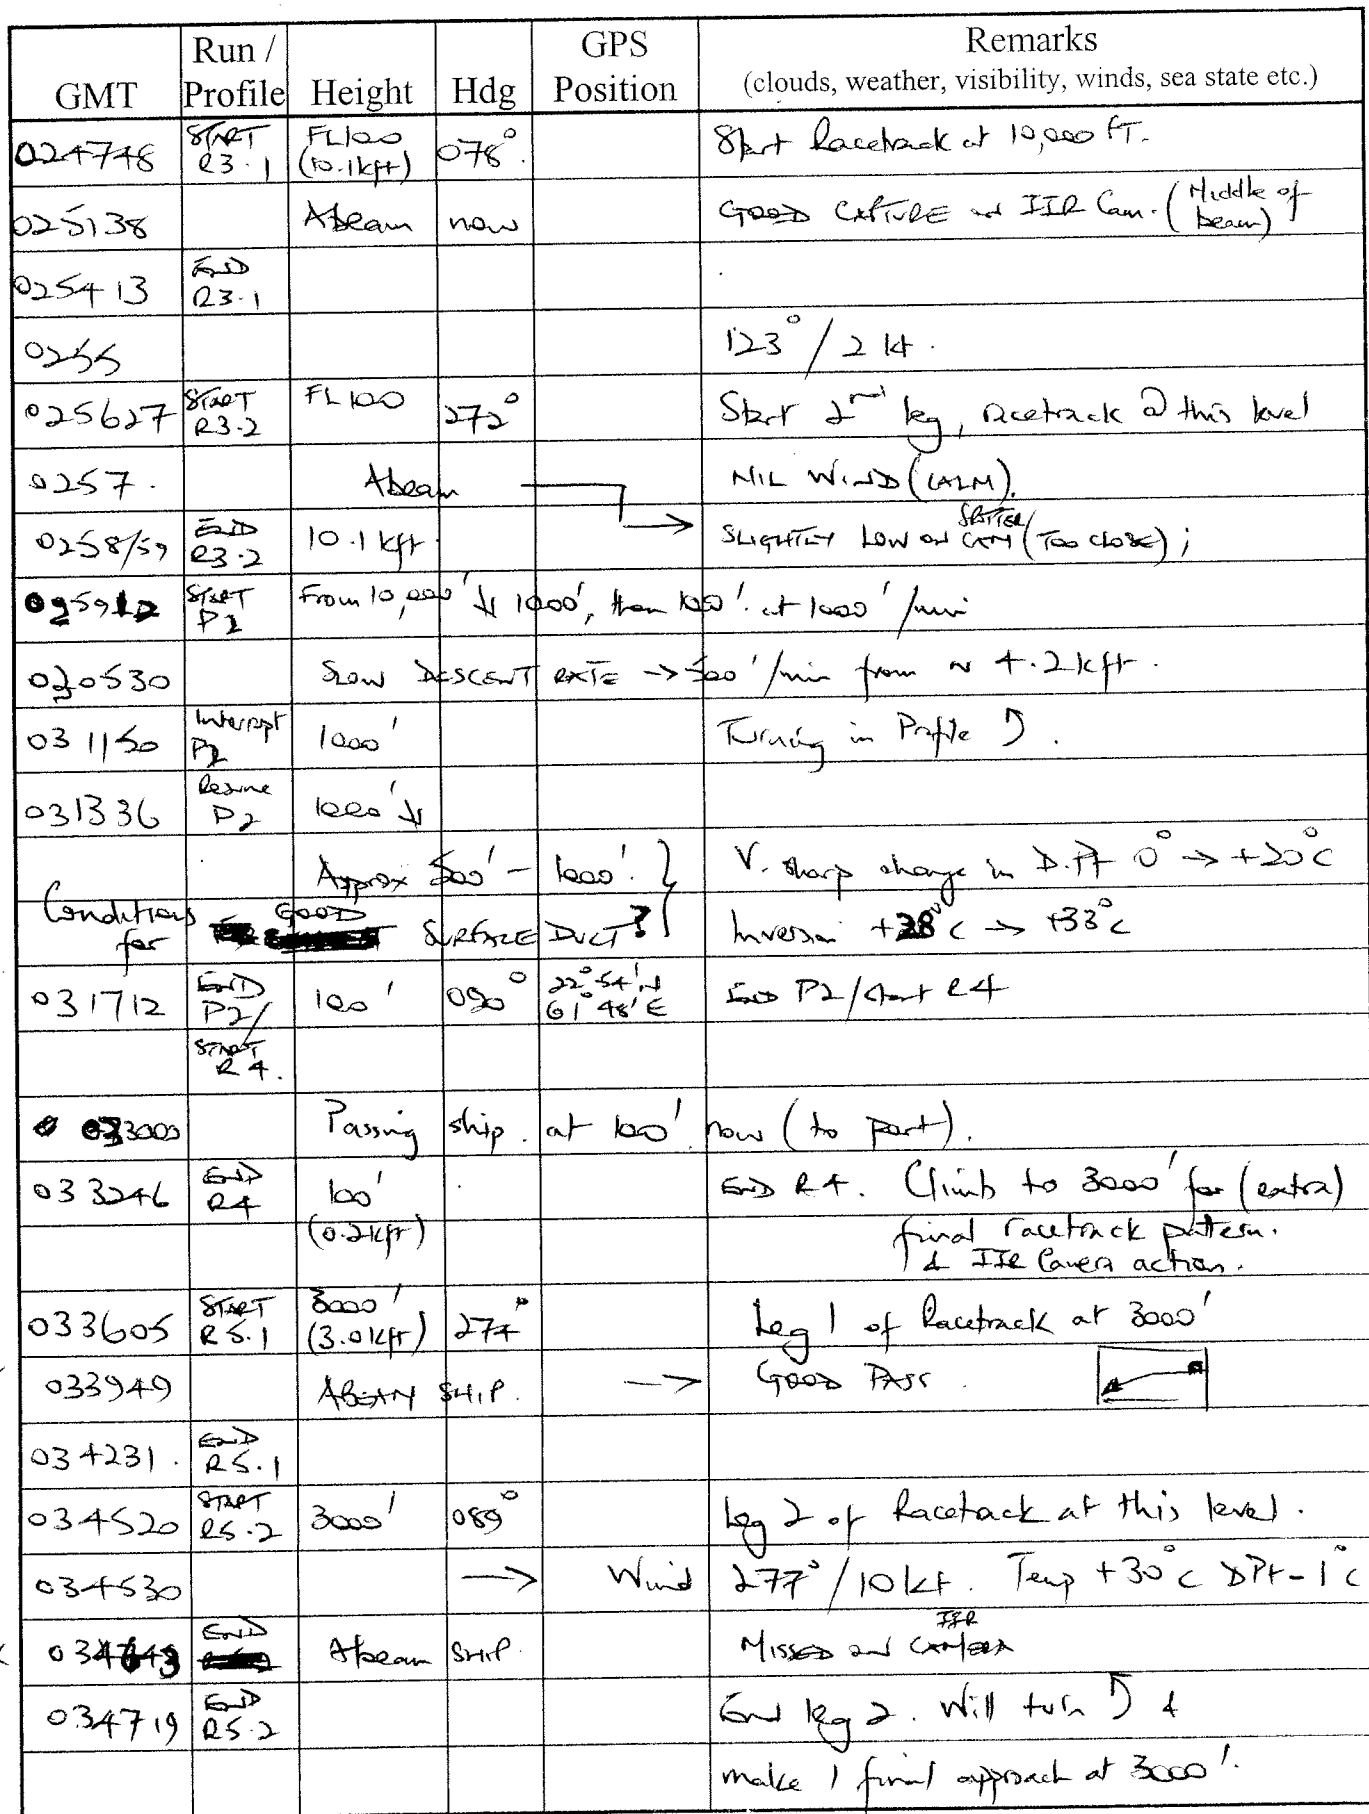 GMT Run / Profile Height Hdg GPS Position Remarks
(clouds, weather, visibility, winds, sea state etc.)
024748 START R3.1 FL100 (10.1kft) 078° Start Racetrack at 10,000 ft.
025138 Abeam now GOOD CAPTURE on IIR Cam. (Middle of beam)
025413 END R3.1
0255 123° / 2 kt.
025627 START R3.2 FL100 272° Start 2nd leg, racetrack @ this level
0257. Abeam NIL WIND (CALM).
0258/59 END R3.2 10.1 kft → SLIGHTLY LOW ON CAM (TOO CLOSE);
025912 START P2 From 10,000' ↓ 1000', then 100' at 1000'/min
030530 SLOW DESCENT RATE → 500'/min from ~ 4.2kft.
031150 Interrupt P2 1000' Turning in Profile
031336 Resume P2 1000' ↓
Approx 500' - 1000'. } V. sharp change in D.Pt 0° → +20°C
Conditions for GOOD SURFACE DUCT? Inversion +28°C → +33°C
031712 END P2/ 100' 090° 22°54'N 61°48'E END P2/Start R4
START R4.
033000 Passing ship. at 100' now (to port).
033246 END R4 100' END R4. Climb to 3000' for (extra)
(0.2kft) final racetrack pattern.
& IIR Camera action.
033605 START R5.1 3000' (3.0kft) 274° Leg 1 of Racetrack at 3000'
033949 ABEAM SHIP. → GOOD PASS.
034231. END R5.1
034520 START R5.2 3000' 089° Leg 2 of Racetrack at this level.
034530 → Wind 277°/10kt. Temp +30°C DPt -1°C
Abeam SHIP. MISSED on IIR CAMERA
034719 END R5.2 End leg 2. Will turn &
make 1 final approach at 3000'.